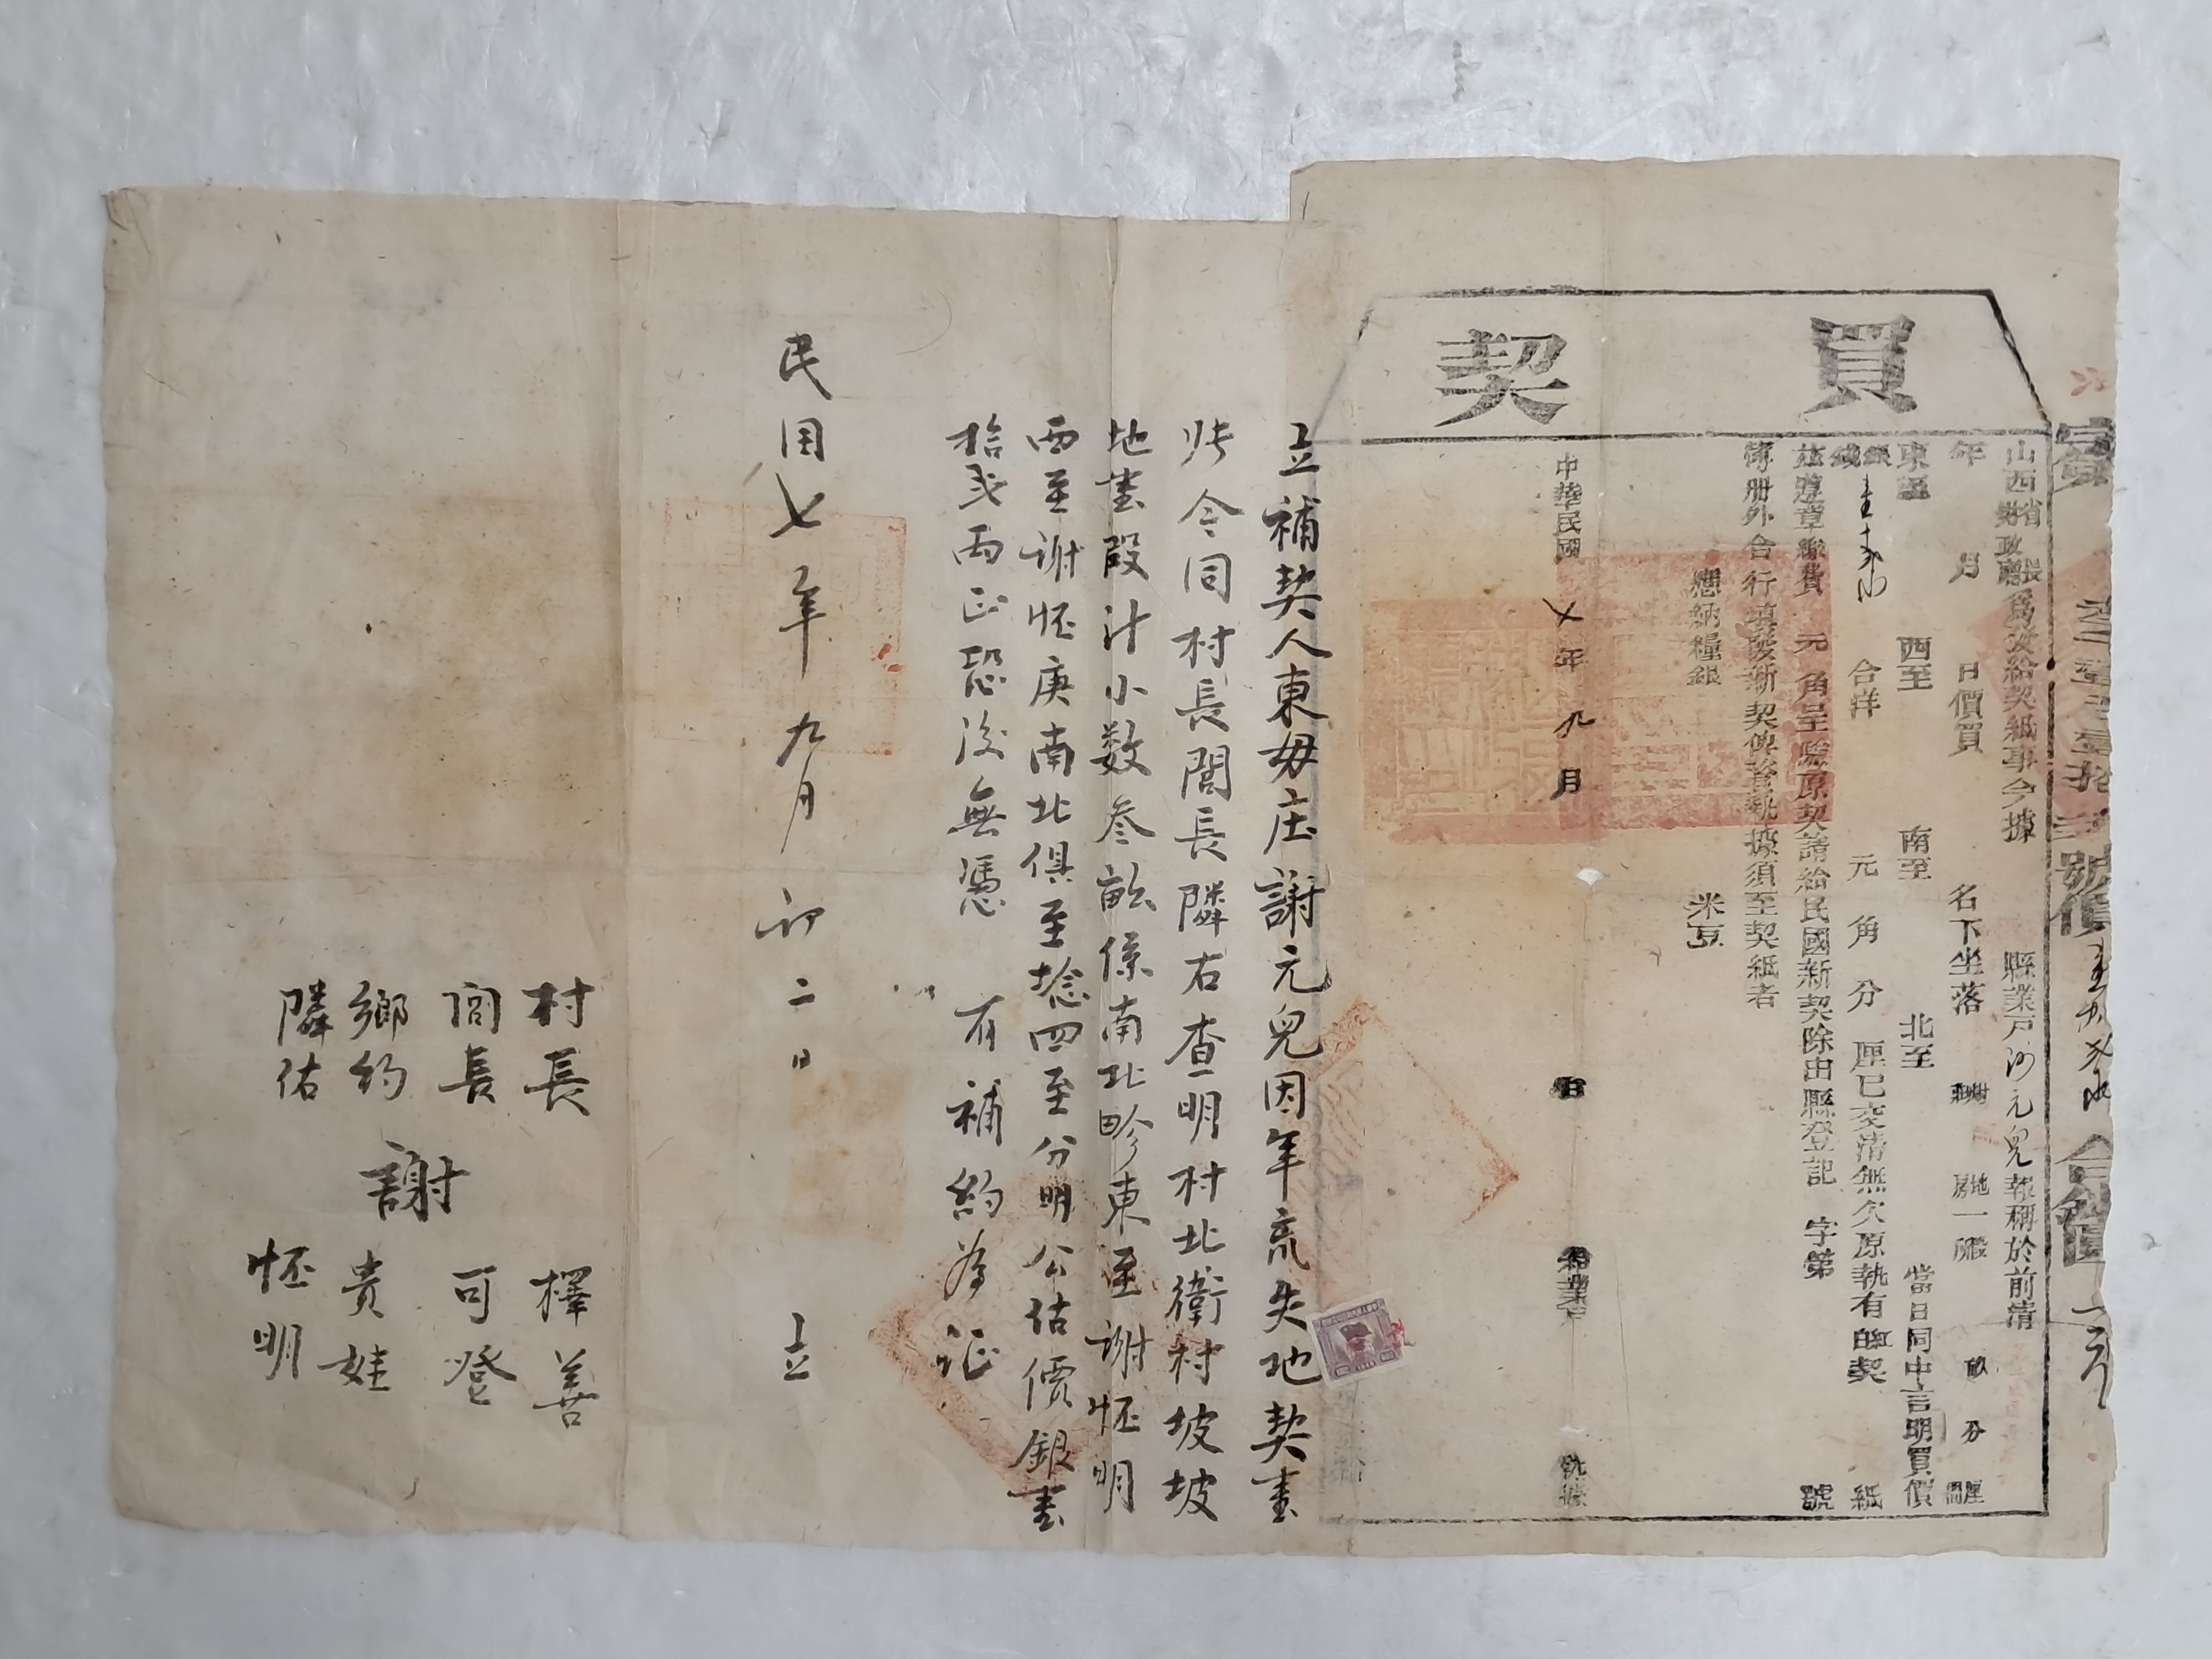 買契
山西省財政廳長為發給契紙事今據 縣業戶謝元兒報稱於前清
年 月 日價買 名下坐落 村莊 地房一段所 畝分厘間
東至 西至 南至 北至 當日同中言明買價
銀錢 合洋 元角分厘已交清無欠原執有白紅契 紙
茲遵章繳費 元角呈驗原契請給民國新契除由縣登記 字第 號
簿冊外合行填發新契俾資執據須至契紙者
應納糧銀 米豆
中華民國 七年 九月 日 給業戶 執據
立補契人東毋庄謝元兒因年荒失地契壹
帋今同村長閭長隣右查明村北衛村坡坡
地壹段計小数叁畝係南北畛東至謝怀明
西至謝怀庚南北俱至埝四至分明公估價銀壹
拾弍两正恐後無憑 有補約為証
民国七年九月初二日 立
村長 擇善
閭長 可登
鄉約 謝 贵娃
隣佑 怀明